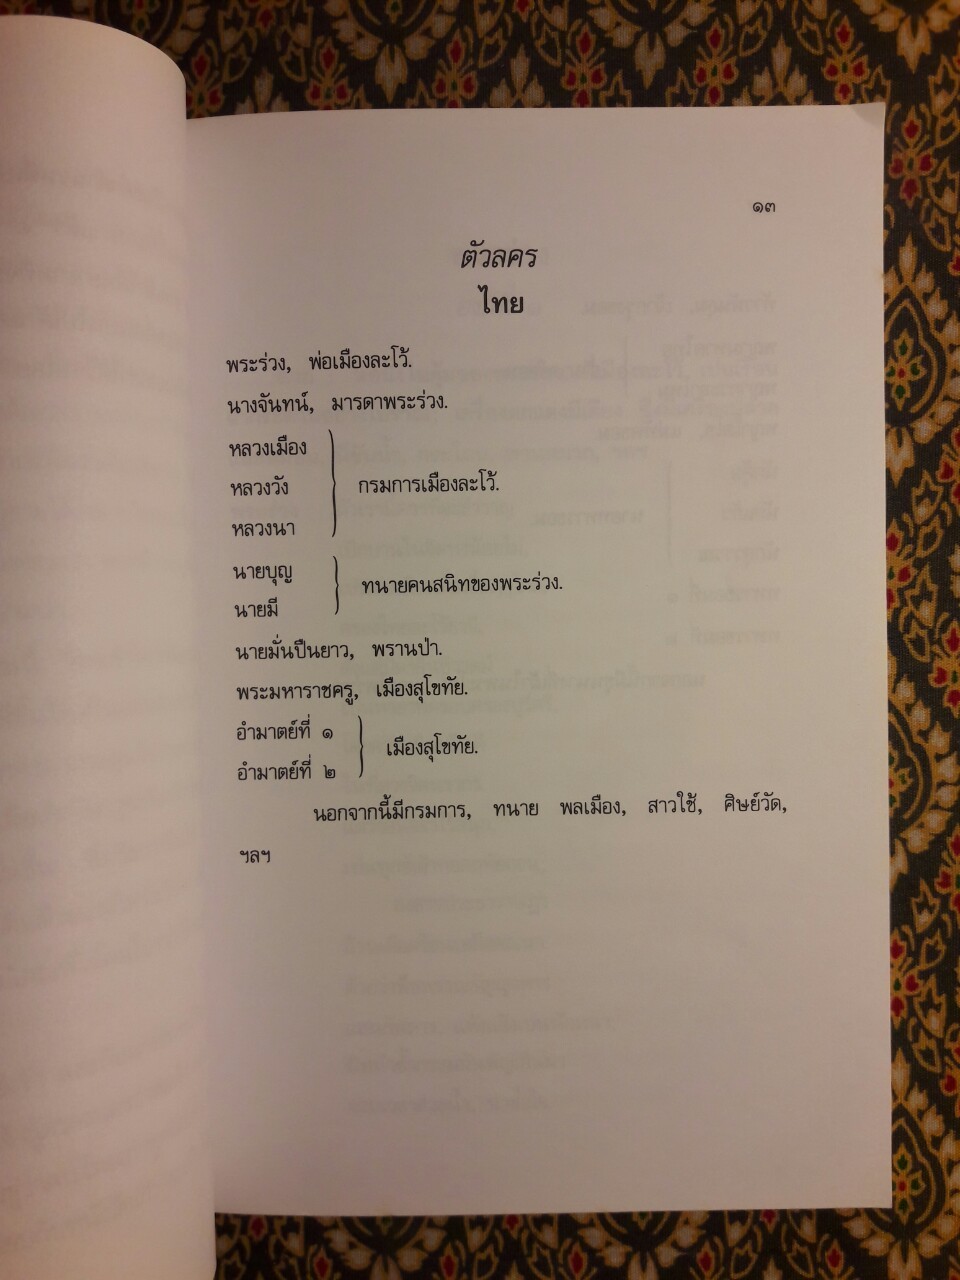 ๑๓
ตัวลคร
ไทย
พระร่วง, พ่อเมืองละโว้.
นางจันทน์, มารดาพระร่วง.
หลวงเมือง
หลวงวัง
หลวงนา
กรมการเมืองละโว้.
นายบุญ
นายมี
ทนายคนสนิทของพระร่วง.
นายมั่นปืนยาว, พรานป่า.
พระมหาราชครู, เมืองสุโขทัย.
อำมาตย์ที่ ๑
อำมาตย์ที่ ๒
เมืองสุโขทัย.
นอกจากนี้มีกรมการ, ทนาย พลเมือง, สาวใช้, ศิษย์วัด,
ฯลฯ